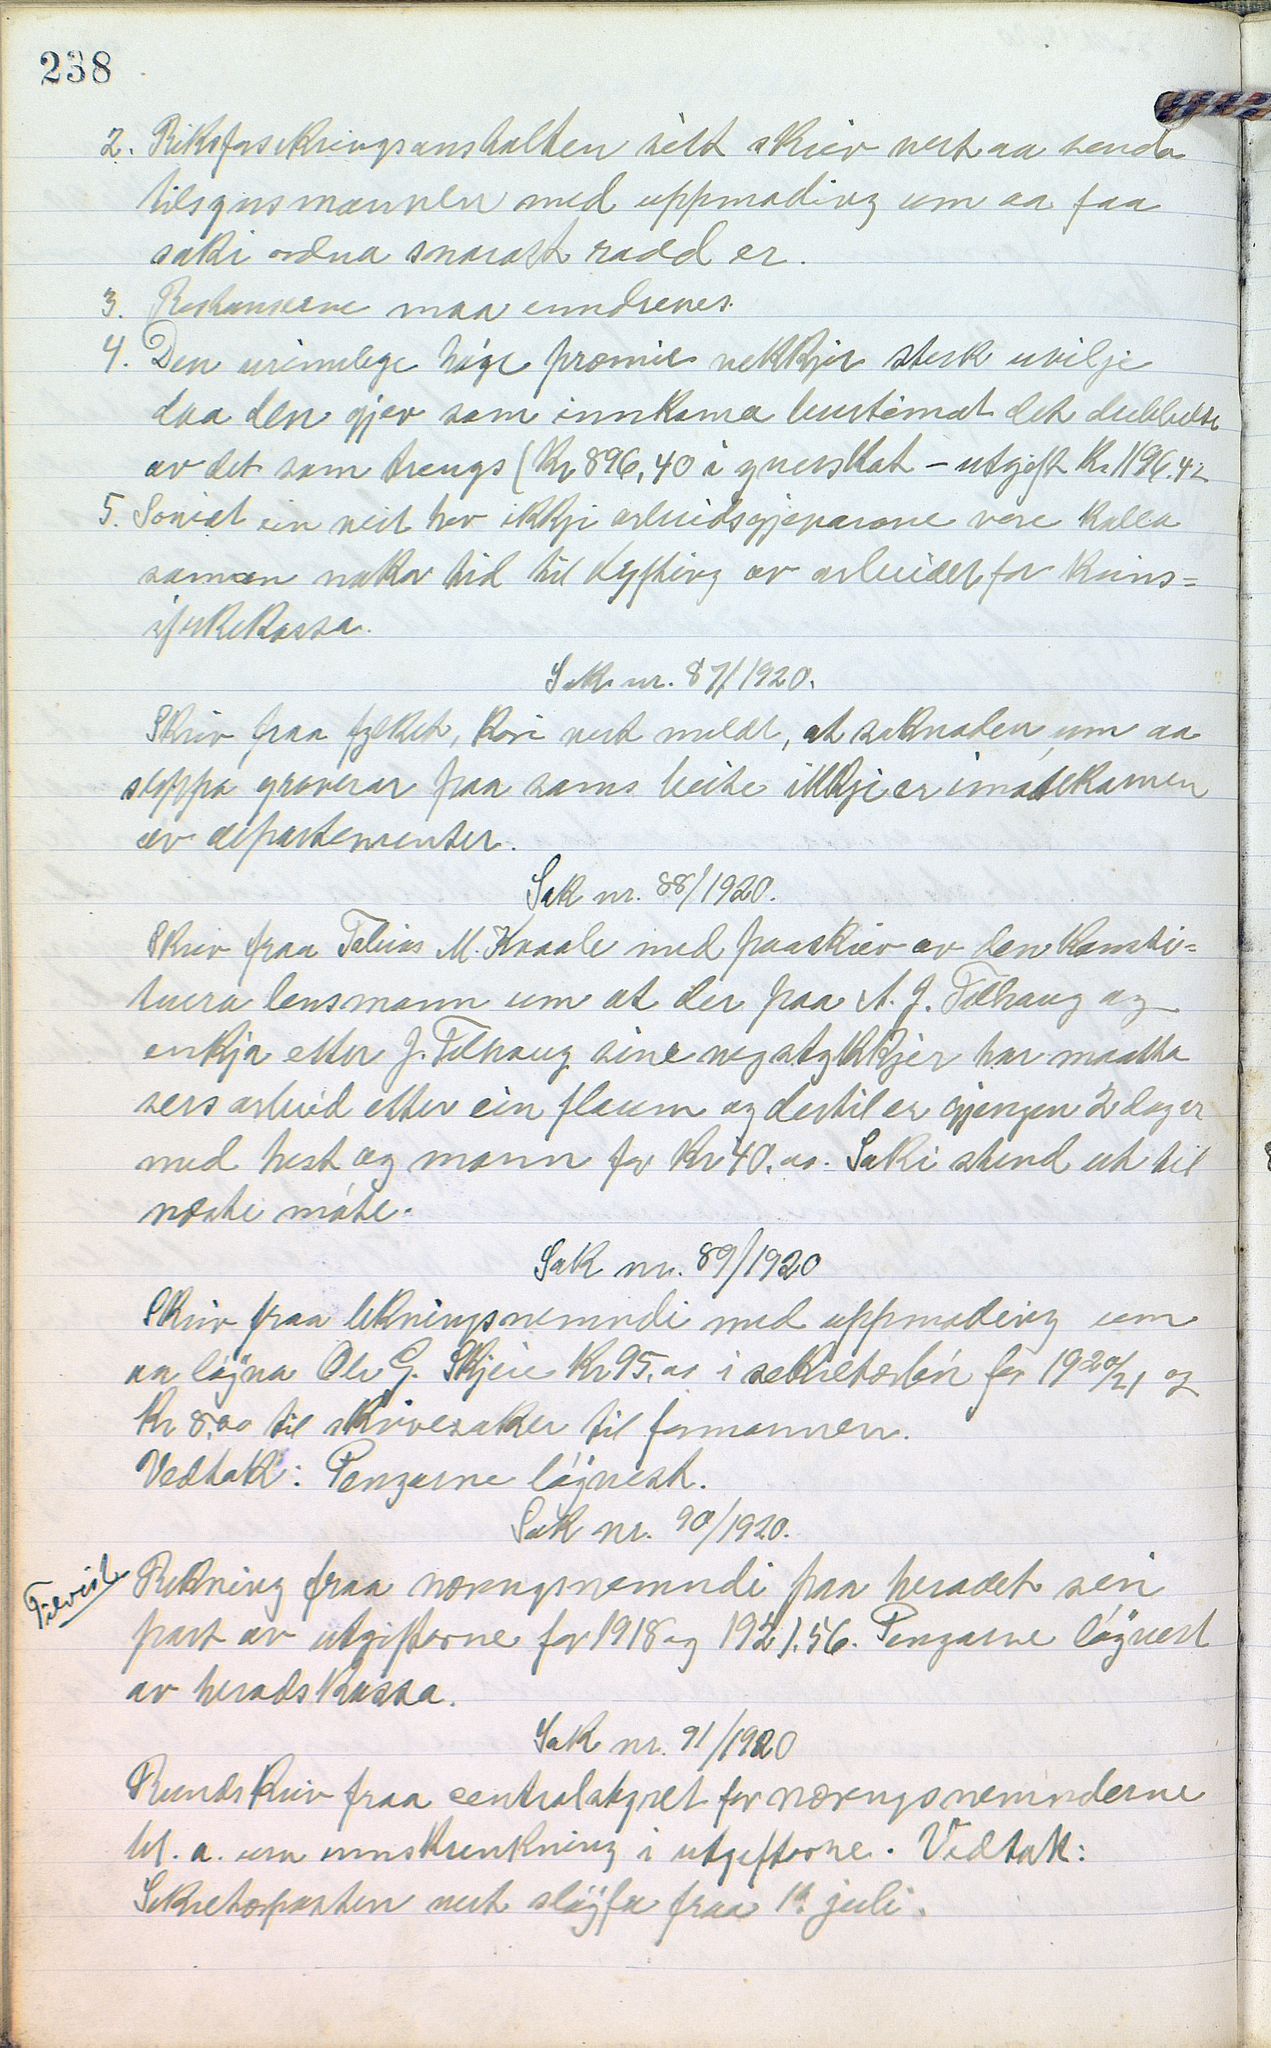 238
2. Riksforsikringsanstalten sitt skriv vert aa senda
tilsynsmannen med uppmoding um aa faa
saki ordna snarast raad er.
3. Restanserne maa inndrives.
4. Den urimelege høge premie vekkjer sterk uvilje
daa den gjev som innkoma burtimot det dubbelte
av det som trengs (Kr 896,40 i - utgift Kr. 1196.42
5. Soviet ein veit hev ikkje arbeidsgjevarane vore kalla
saman nokor tid til drøfting av arbeidet for krins=
sjukekassa.
Sak nr. 87/1920.
Skriv fraa fylket, kori vert meldt, at søknaden um aa
sleppa graverar paa sams beite ikkje er imøtekomen
av departementet.
Sak nr. 88/1920.
Skriv fraa Tobias M. Kvaale med paaskriv av den konsti=
tuera lensmann um at der paa A. J. Tolhaug og
enkja etter J. Tolhaug sine vegstykkjer har maatta
vers arbeid etter ein flaum og dertil er gjengen 2 dagar
med hest og mann for Kr 40.00. Saki stend ut til
næste møte.
Sak nr. 89/1920
Skriv fraa likningsnemndi med uppmoding um
aa løyva Ole G. Skjeie Kr 95,00 i sekretærløn for 1920/21 og
Kr 8,00 til skrivesaker til formannen.
Vedtak: Pengarne løyvest.
Sak nr. 90/1920.
Tilvist
Rekning fraa verjenemndi paa heradet sin
part av utgifterne for 1918 og 19 21.56. Pengarne løyvest
av heradskassa.
Sak nr. 91/1920
Rundskriv fraa centralstyret for nemnderne
bl. a. um innskrenkning i utgifterne. Vedtak:
Sekretærposten vert sløyfa fraa 1ste juli.